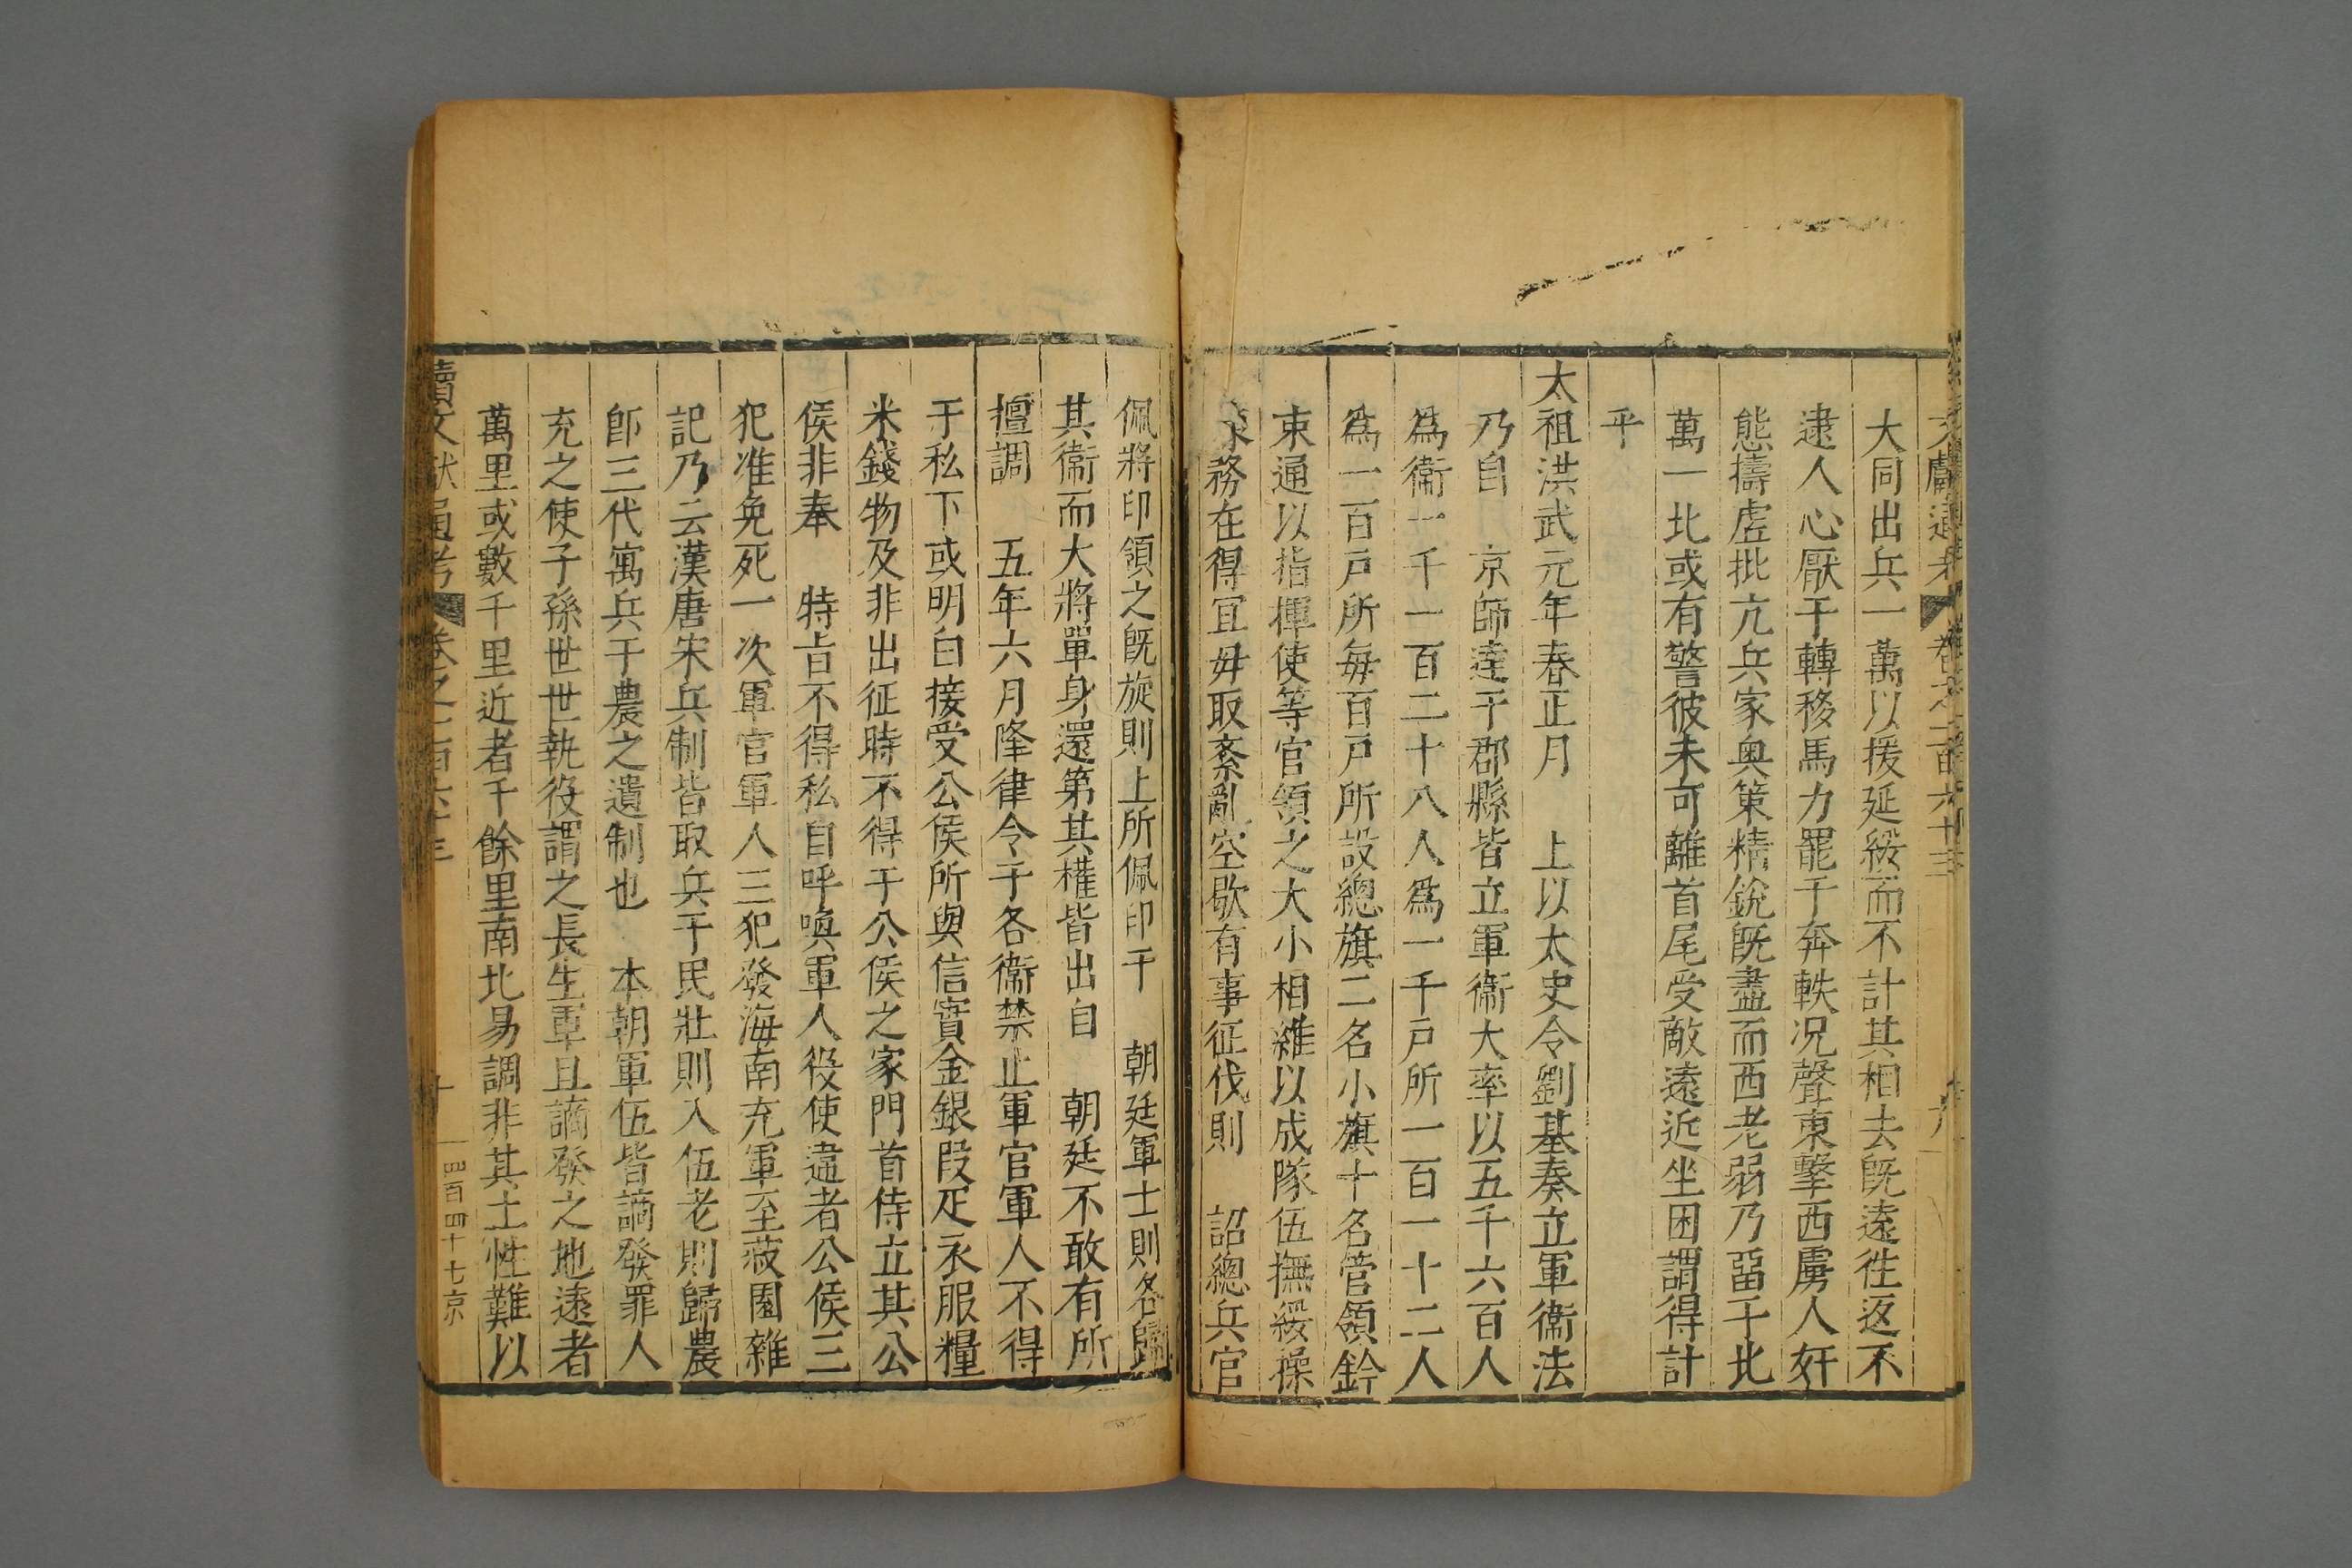 文獻通考 卷之二百六十三
大同出兵一萬以援延綏而不計其相去旣遠徃返不
逮人心厭于轉移馬力罷于奔軼况聲東擊西虜人奸
態擣虗批亢兵家奥策精銳旣盡而西老弱乃畱于北
萬一北或有警彼未可離首尾受敵遠近坐困謂得計
乎
太祖洪武元年春正月 上以太史令劉基奏立軍衞法
乃自 京師逹于郡縣皆立軍衞大率以五千六百人
爲衞一千一百二十八人爲一千戸所一百一十二人
爲一百戸所每百戸所設總旗二名小旗十名管領鈐
束通以指揮使等官領之大小相雜以成隊伍撫綏操
練務在得宜毋取紊亂空歇有事征伐則 詔總兵官
佩將印領之旣旋則上所佩印于 朝廷軍士則各歸
其衞而大將單身還第其權皆出自 朝廷不敢有所
擅調 五年六月降律令于各衞禁止軍官軍人不得
于私下或明白接受公侯所與信寳金銀段疋衣服糧
米錢物及非出征時不得于公侯之家門首侍立其公
侯非奉 特旨不得私自呼喚軍人役使違者公侯三
犯准免死一次軍官軍人三犯發海南充軍至菽園雜
記乃云漢唐宋兵制皆取兵于民壯則入伍老則歸農
卽三代寓兵于農之遺制也 本朝軍伍皆謫發罪人
充之使子孫世世執役謂之長生軍且謫發之地遠者
萬里或數千里近者千餘里南北易調非其土性難以
續文獻通考 卷之二百六十三 十 四百四十七京